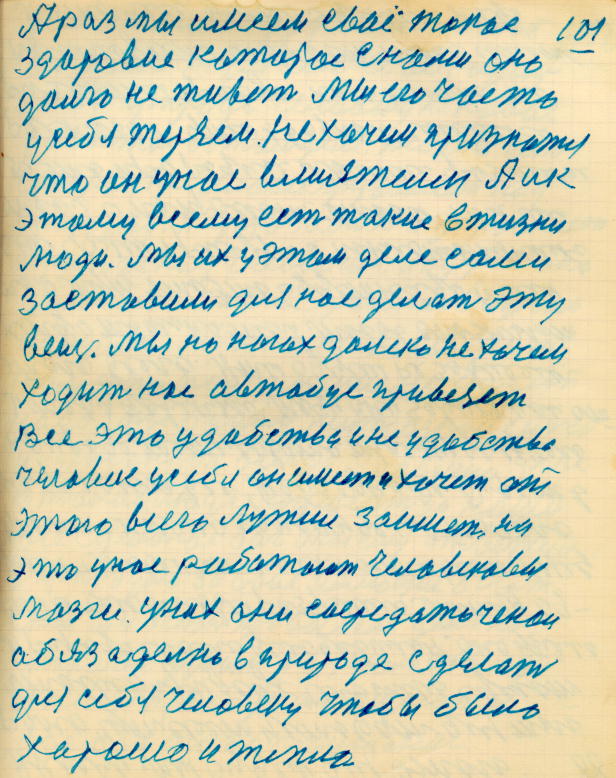 А раз мы имеем своё такое 101
здоровие каторое снами оно
долго не живет мы его часть
усебя теряем. Не хочем признатся
что он унас вмиравшем А ик
этому всему ест такие вжизни
люди. мы их уэтом деле сами
заставили для нас делат эту
вещ. мы на ногах далеко не хочем
ходит нас автобус привезет
Все это удобства и не удобства
человек усебя он имеет и хочет от
этого всего лутше заимет. на
это унас работают человековы
мозги. уних они сосредаточеной
обязателно в природе сделат
для себя человеку чтобы было
харошо и тепло